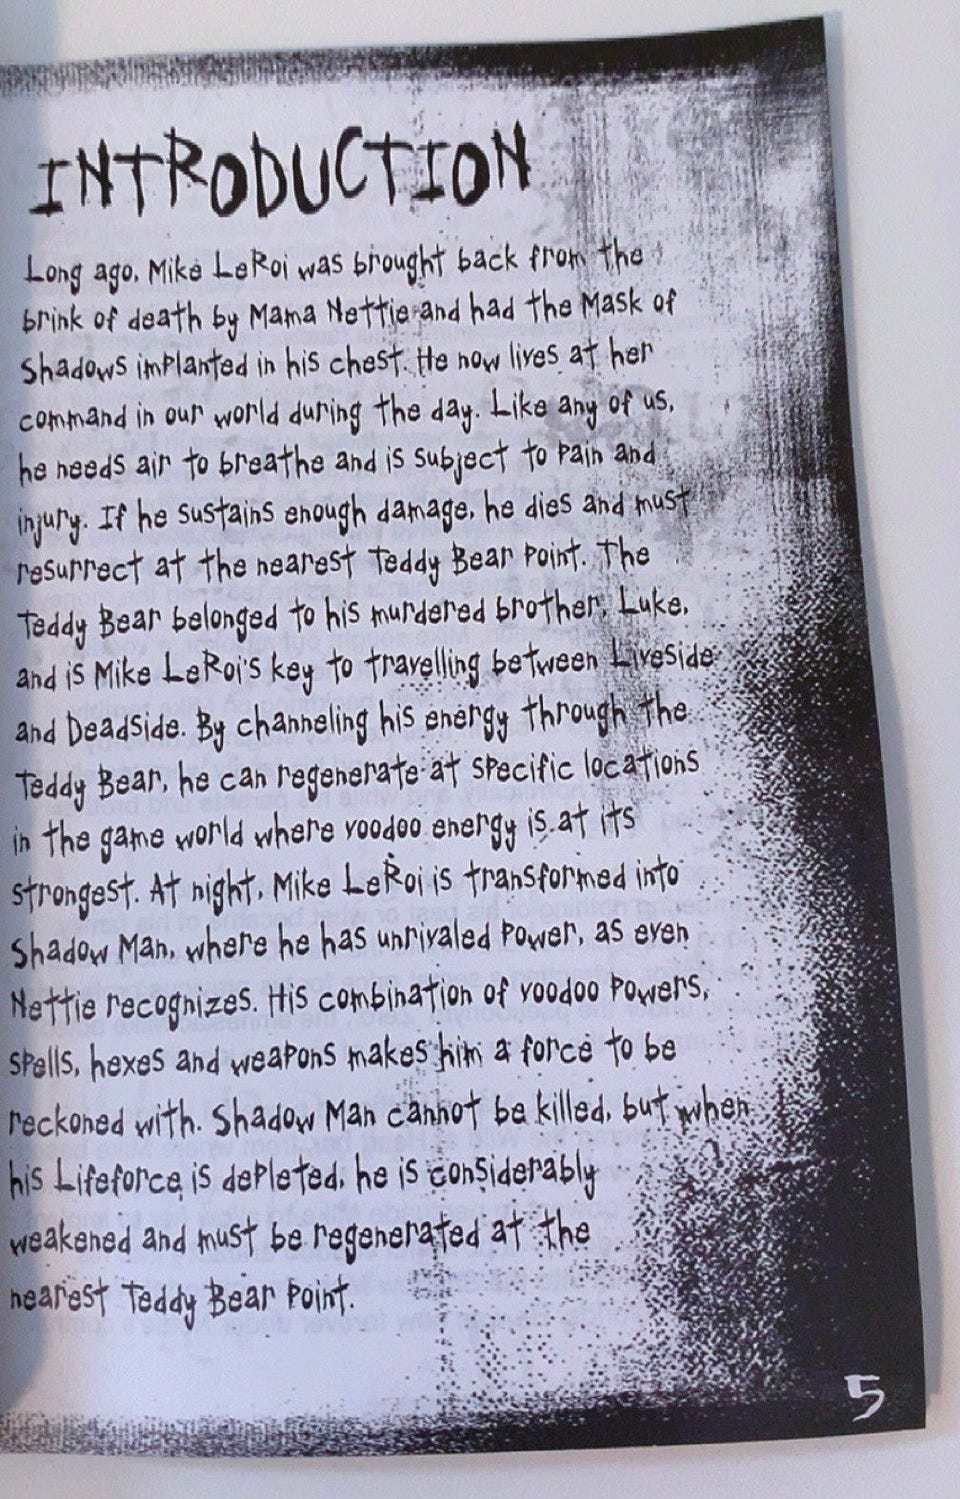 INTRODUCTION
Long ago, Mike LeRoi was brought back from the
brink of death by Mama Nettie and had the Mask of
Shadows implanted in his chest. He now lives at her
command in our world during the day. Like any of us,
he needs air to breathe and is subject to pain and
injury. If he sustains enough damage, he dies and must
resurrect at the nearest Teddy Bear Point. The
Teddy Bear belonged to his murdered brother, Luke,
and is Mike LeRoi's key to travelling between Liveside
and Deadside. By channeling his energy through the
Teddy Bear, he can regenerate at specific locations
in the game world where voodoo energy is at its
strongest. At night, Mike LeRoi is transformed into
Shadow Man, where he has unrivaled power, as even
Nettie recognizes. His combination of voodoo powers,
spells, hexes and weapons makes him a force to be
reckoned with. Shadow Man cannot be killed, but when
his Lifeforce is depleted, he is considerably
weakened and must be regenerated at the
nearest Teddy Bear Point.
5